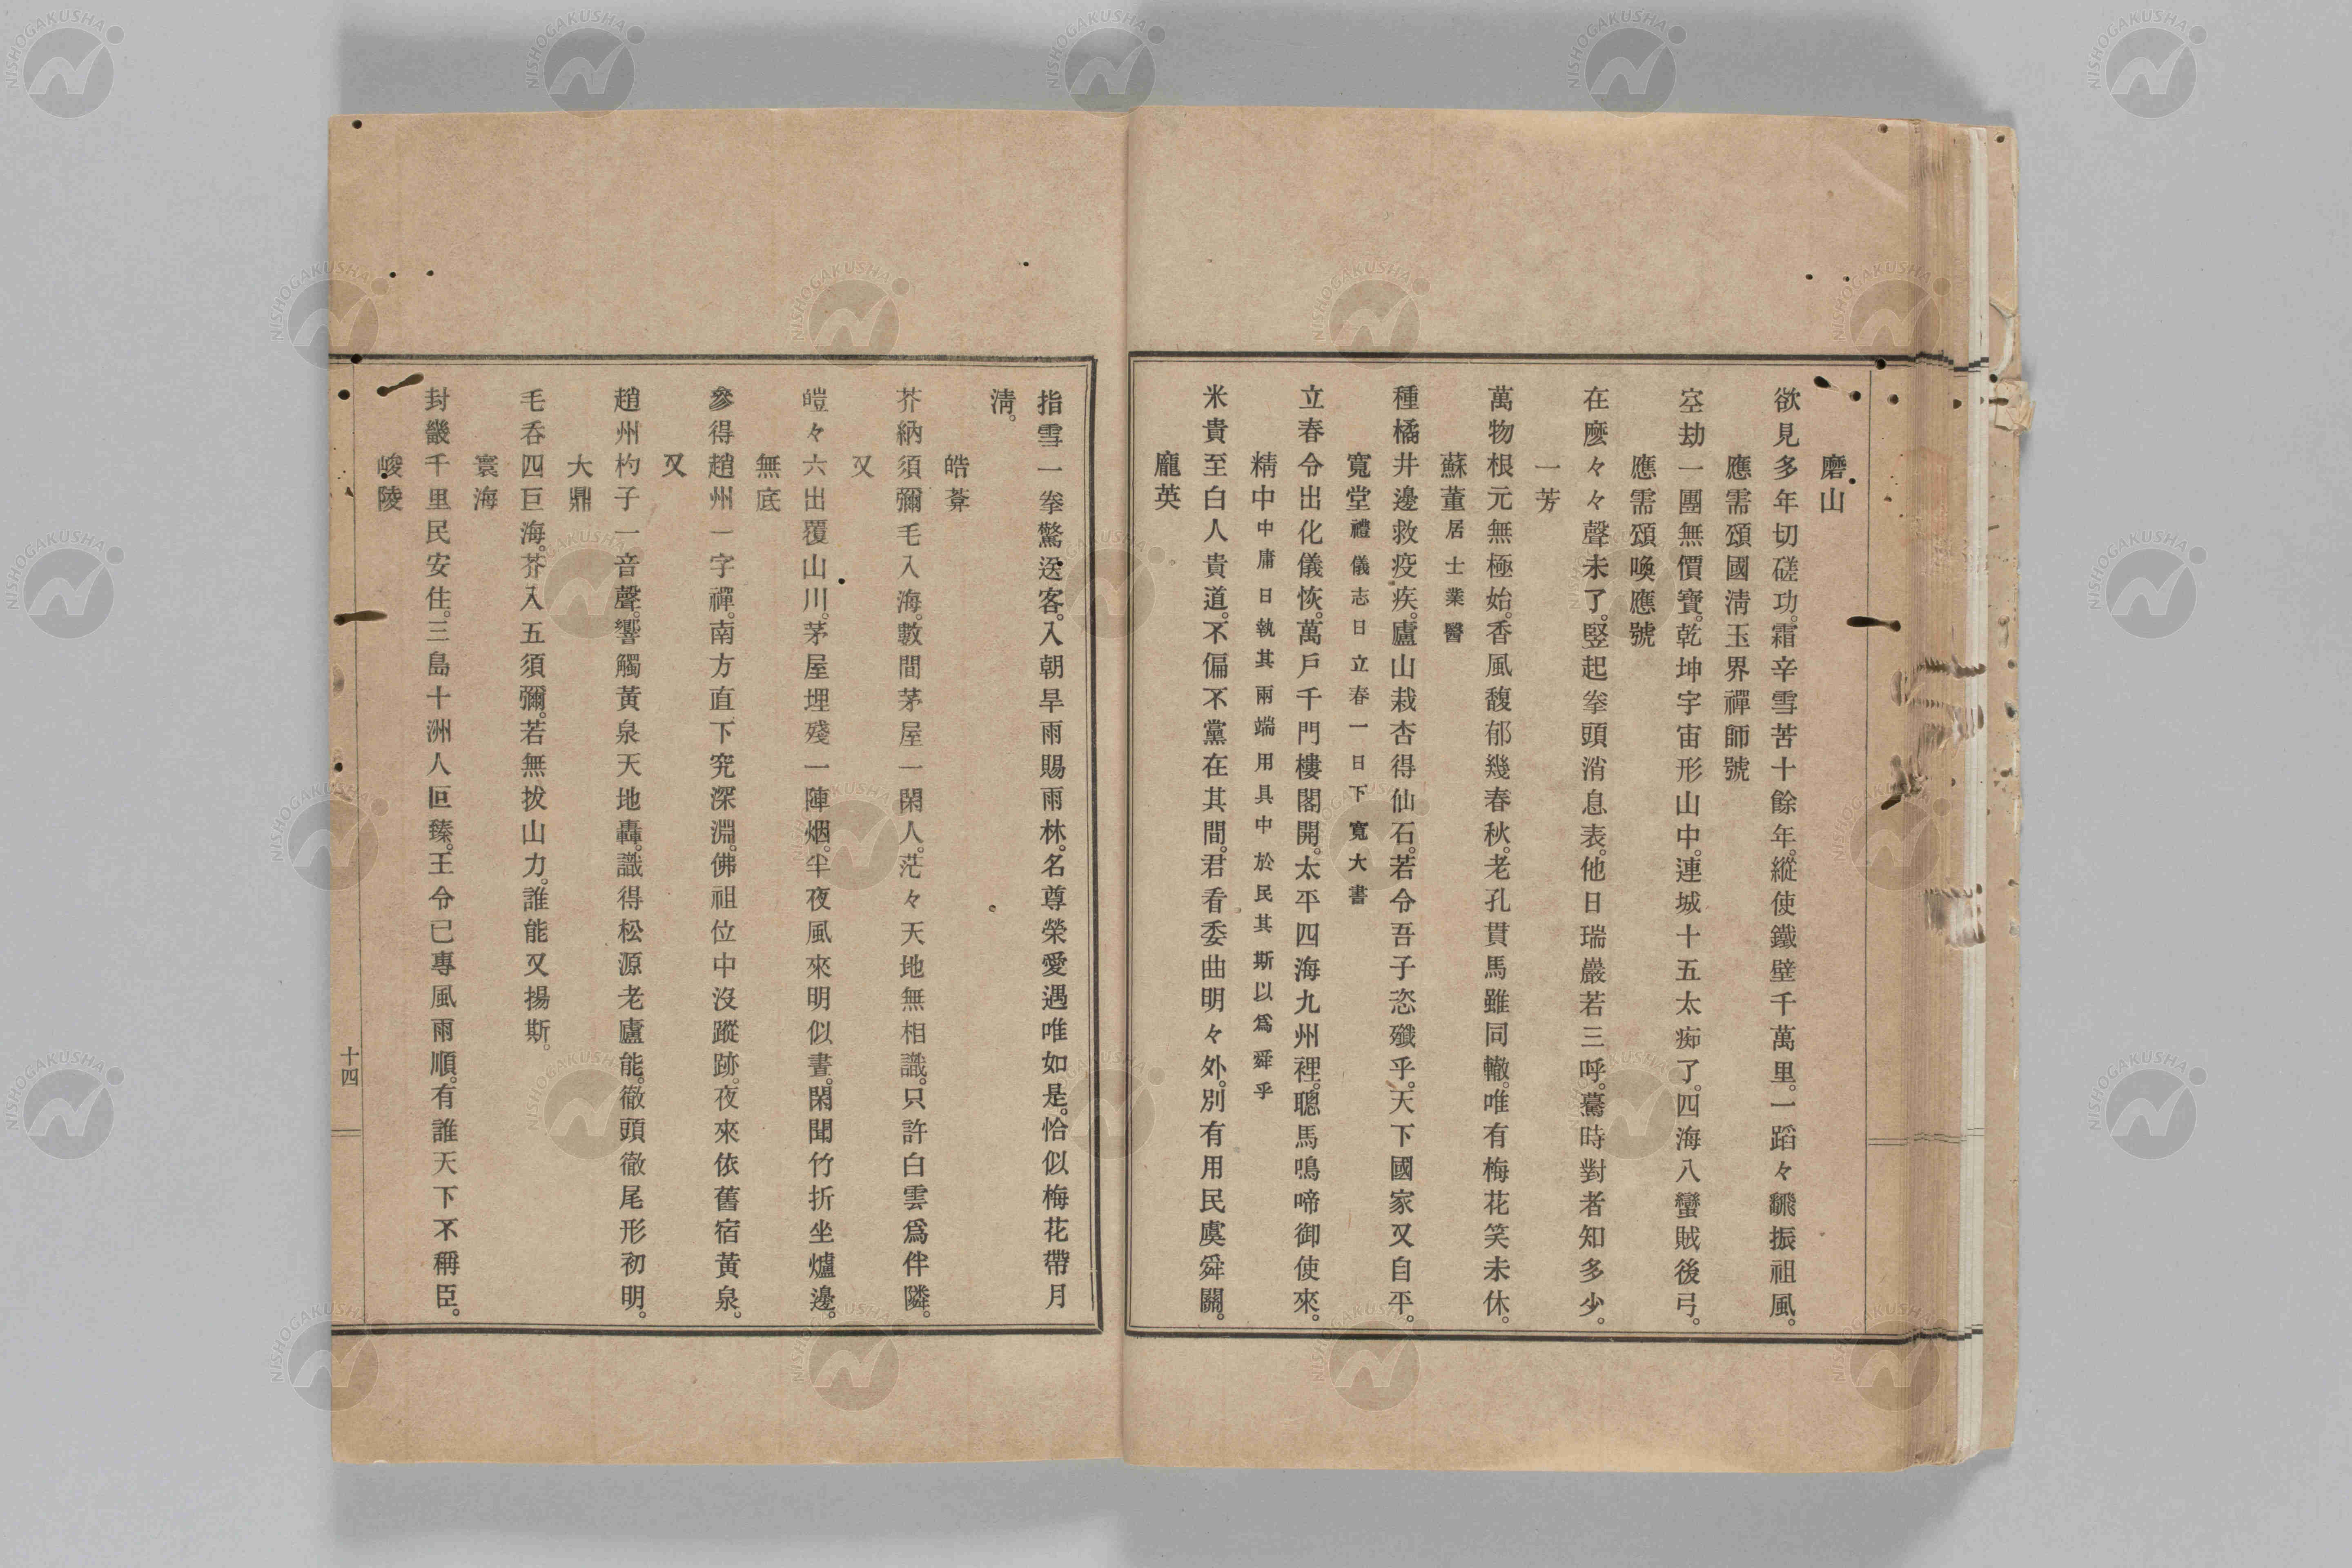 磨山
欲見多年切磋功。霜辛雪苦十餘年。縱使鐵壁千萬里。一蹈々飜振祖風。
應需頌國淸玉界禪師號
空劫一團無價寶。乾坤宇宙形山中。連城十五太痴了。四海八蠻賊後弓。
應需頌喚應號
在麼々々聲未了。竪起拳頭消息表。他日瑞巖若三呼。驀時對者知多少。
一芳
萬物根元無極始。香風馥郁幾春秋。老孔貫馬雖同轍。唯有梅花笑未休。
蘇董居士業醫
種橘井邊救疫疾。廬山栽杏得仙石。若令吾子恣殲乎。天下國家又自平。
寬堂禮儀志曰立春一日下寬大書
立春令出化儀恢。萬戶千門樓閣開。太平四海九州裡。聰馬鳴啼御使來。
精中中庸曰執其兩端用其中於民其斯以爲舜乎
米貴至白人貴道。不偏不黨在其間。君看委曲明々外。別有用民虞舜關。
龐英
指雪一拳驚送客。入朝旱雨賜雨林。名尊榮愛遇唯如是。恰似梅花帶月
淸。
皓菴
芥納須彌毛入海。數間茅屋一閑人。茫々天地無相識。只許白雲爲伴隣。
又
皚々六出覆山川。茅屋埋殘一陣烟。半夜風來明似晝。閑聞竹折坐爐邊。
無底
參得趙州一字禪。南方直下究深淵。佛祖位中沒蹤跡。夜來依舊宿黃泉。
又
趙州杓子一音聲。響觸黃泉天地轟。識得松源老廬能。徹頭徹尾形初明。
大鼎
毛吞四巨海。芥入五須彌。若無拔山力。誰能又揚斯。
寰海
封畿千里民安住。三島十洲人叵臻。王令已專風雨順。有誰天下不稱臣。
峻陵
十四
NISHOGAKUSHA